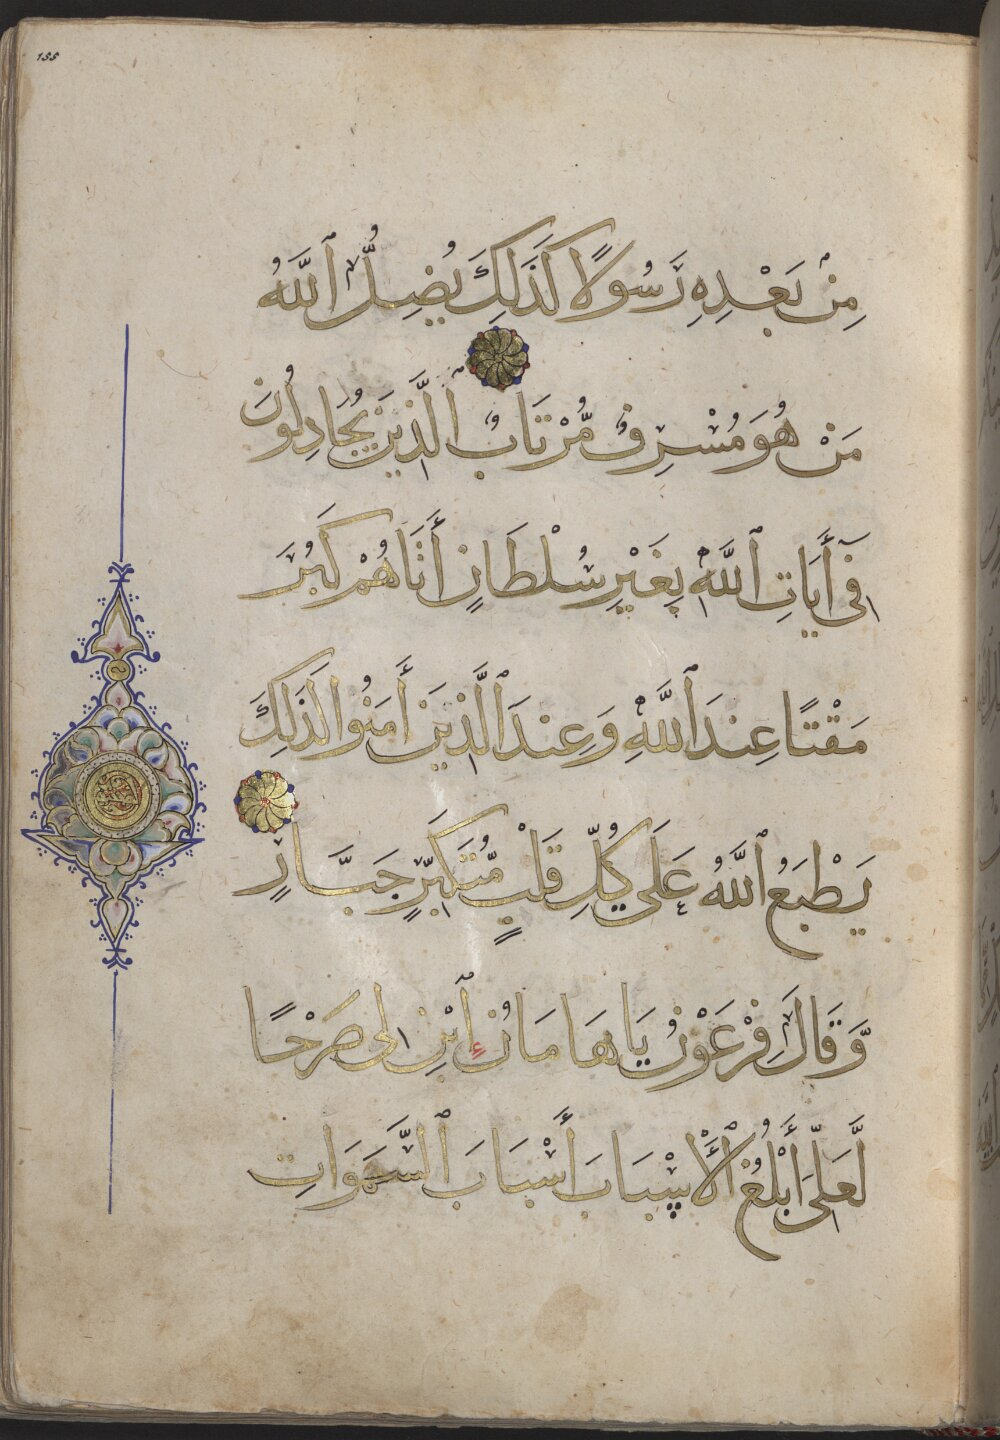 155
مِنْ بَعْدِهِ رَسُولًا كَذَلِكَ يُضِلُّ ٱللَّهُ
مَنْ هُوَ مُسْرِفٌ مُّرْتَابٌ ٱلَّذِينَ يُجَادِلُونَ
فِي أَيَاتِ ٱللَّهِ بِغَيْرِ سُلْطَانٍ أَتَاهُمْ كَبُرَ
مَقْتًا عِندَ ٱللَّهِ وَعِندَ ٱلَّذِينَ أَمَنُوا كَذَلِكَ
يَطْبَعُ ٱللَّهُ عَلَى كُلِّ قَلْبٍ مُّتَكَبِّرٍ جَبَّارٍ
وَّقَالَ فِرْعَوْنُ يَا هَامَانُ ٱبْنِ لِي صَرْحًا
لَّعَلِّي أَبْلُغُ ٱلْأَسْبَابَ أَسْبَابَ ٱلسَّمَوَاتِ